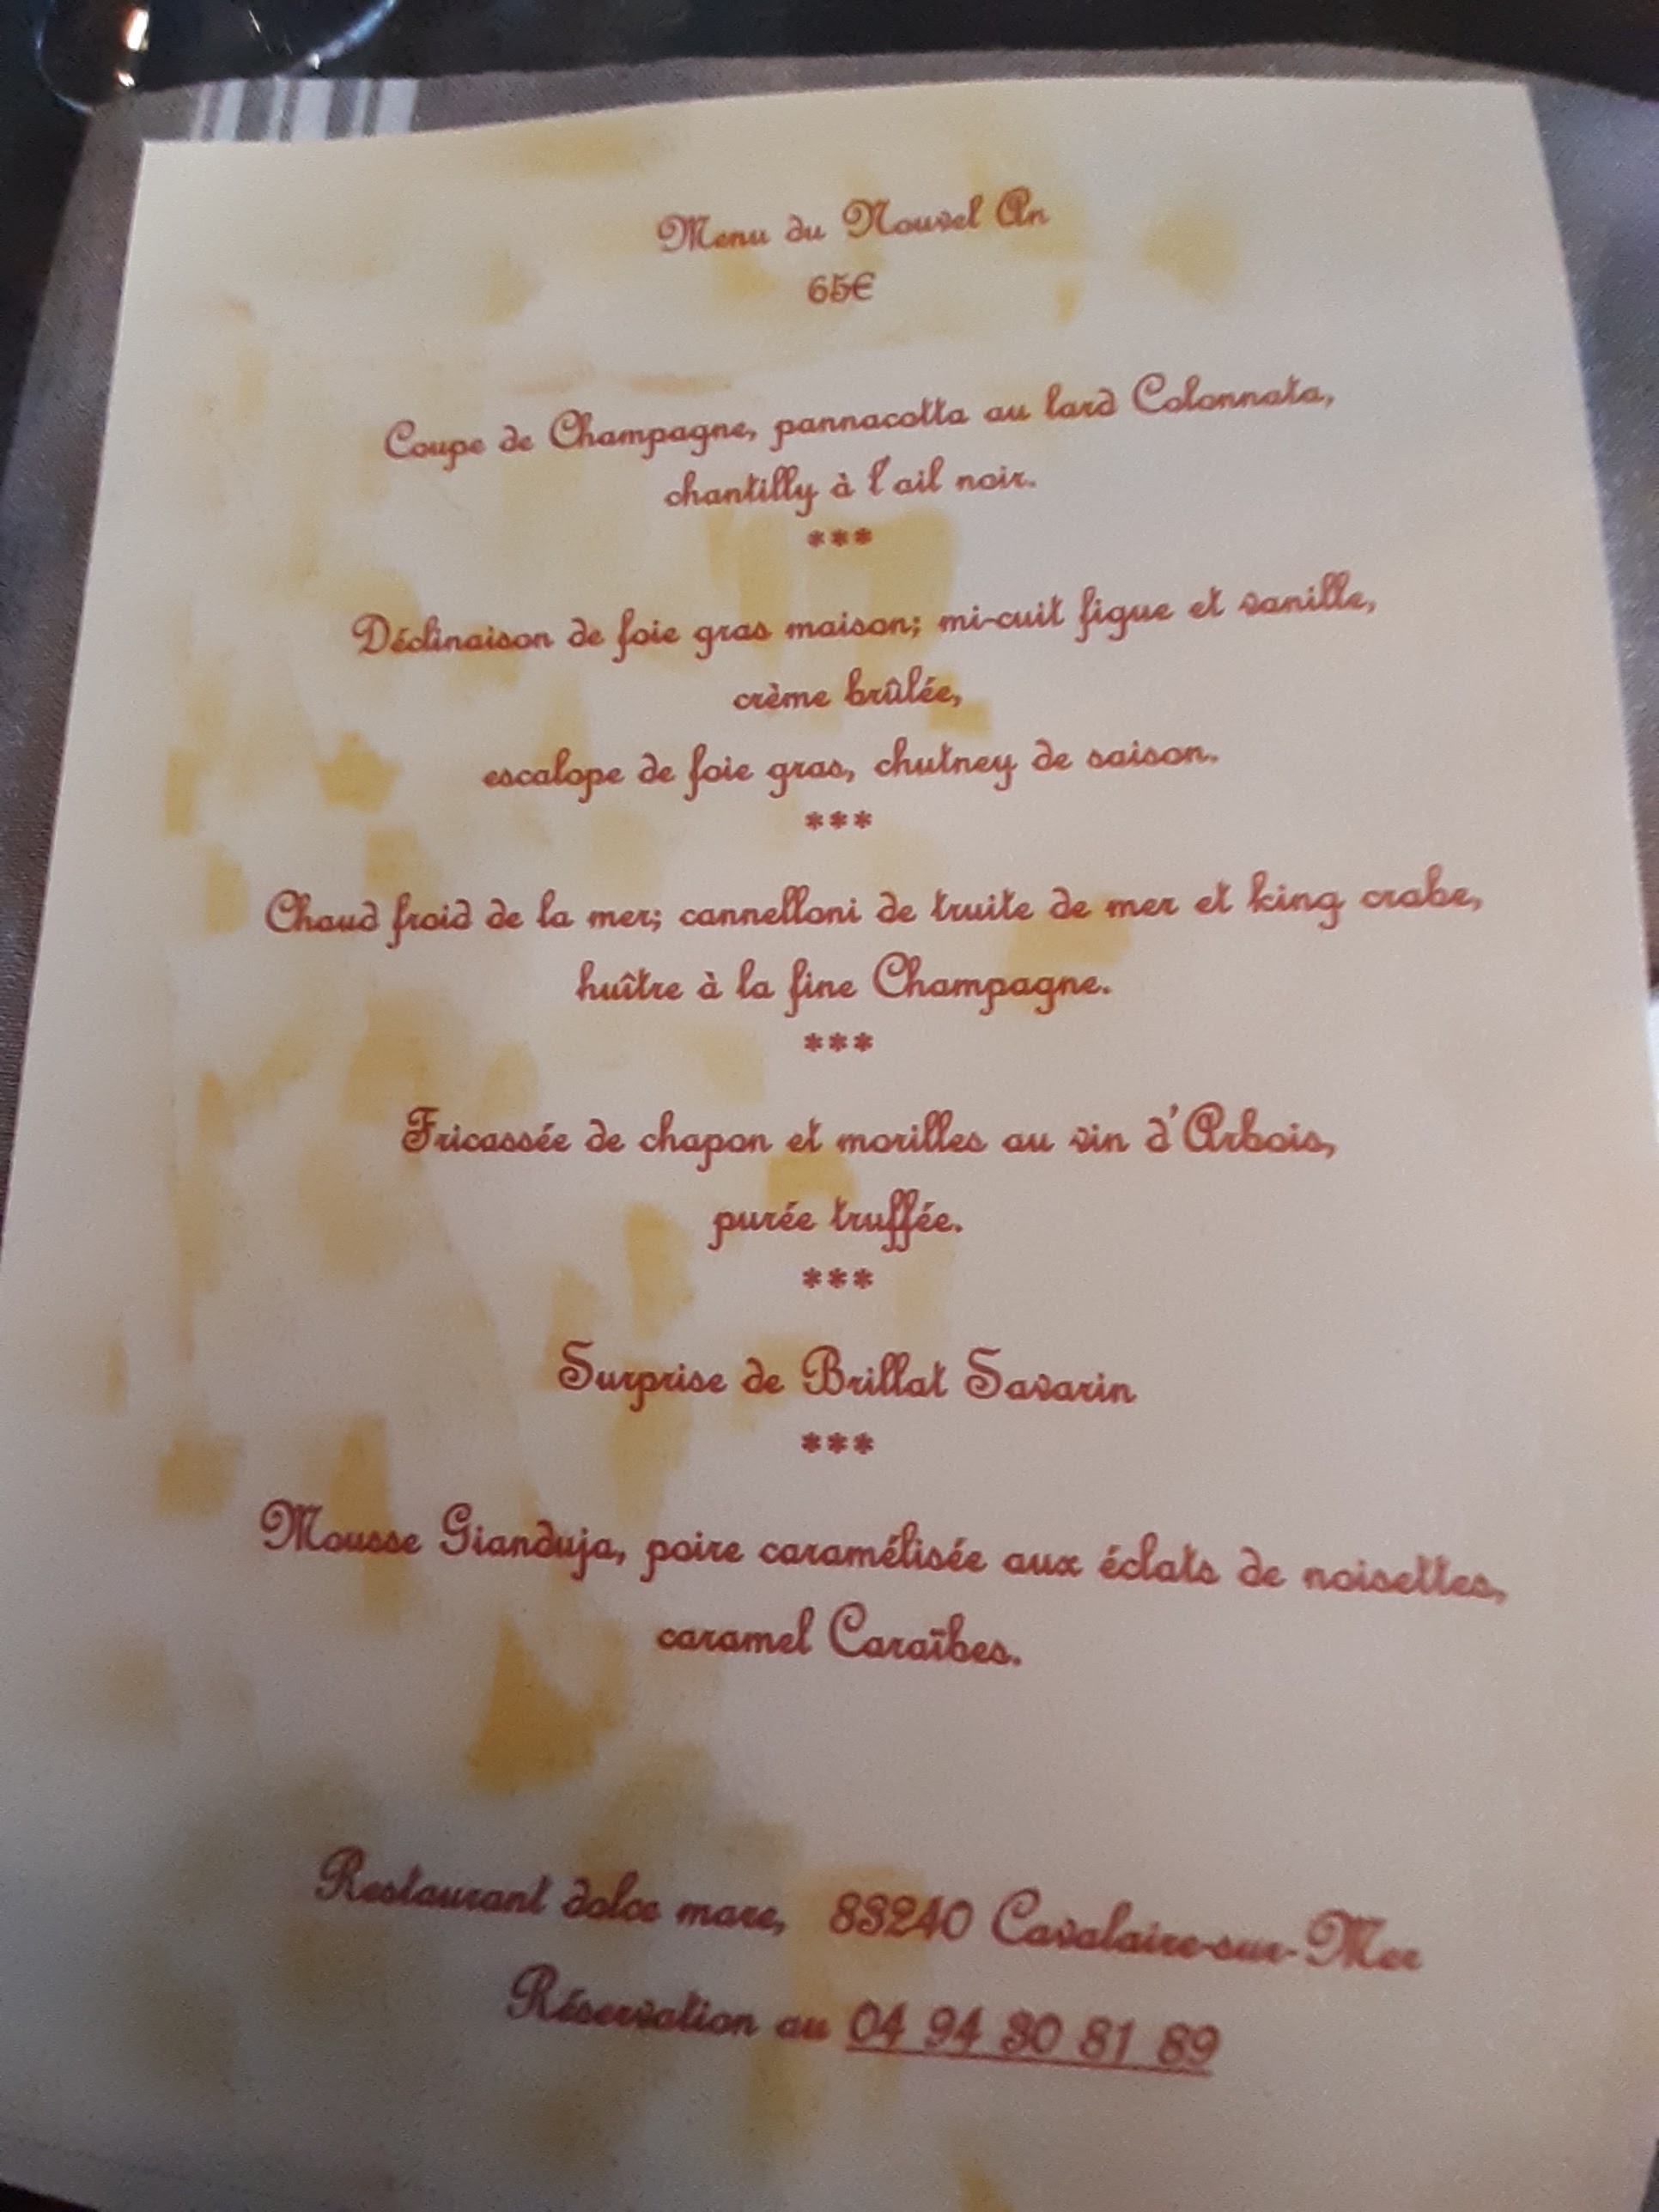 Menu du Nouvel An
65€
Coupe de Champagne, pannacotta au lard Colonnata,
chantilly à l'ail noir.
***
Déclinaison de foie gras maison; mi-cuit figue et vanille,
crème brûlée,
escalope de foie gras, chutney de saison.
***
Chaud froid de la mer; cannelloni de truite de mer et king crabe,
huître à la fine Champagne.
***
Fricassée de chapon et morilles au vin d'Arbois,
purée truffée.
***
Surprise de Brillat Savarin
***
Mousse Gianduja, poire caramélisée aux éclats de noisettes,
caramel Caraïbes.
Restaurant dolce mare, 83240 Cavalaire-sur-Mer
Réservation au 04 94 30 81 89